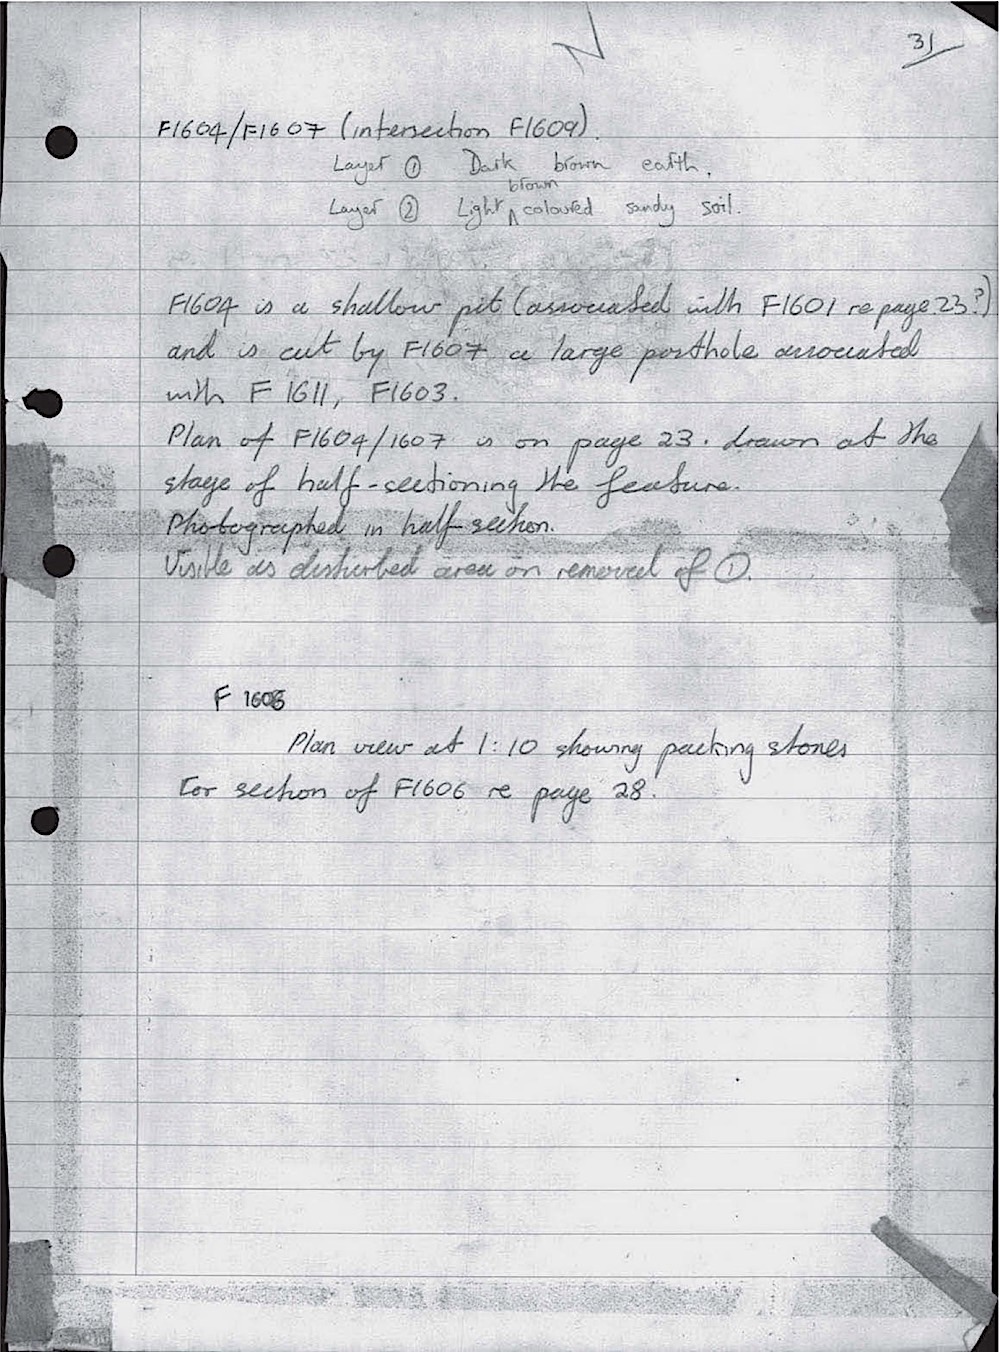 31
F1604/F1607 (intersection F1609).
Layer ① Dark brown earth.
Layer ② Light brown coloured sandy soil.
F1604 is a shallow pit (associated with F1601 re page 23?)
and is cut by F1607 a large posthole associated
with F 1611, F1603.
Plan of F1604/1607 is on page 23. drawn at the
stage of half-sectioning the feature.
Photographed in half-section.
Visible as disturbed area on removal of ①.
F 1606
Plan view at 1:10 showing packing stones
For section of F1606 re page 28.